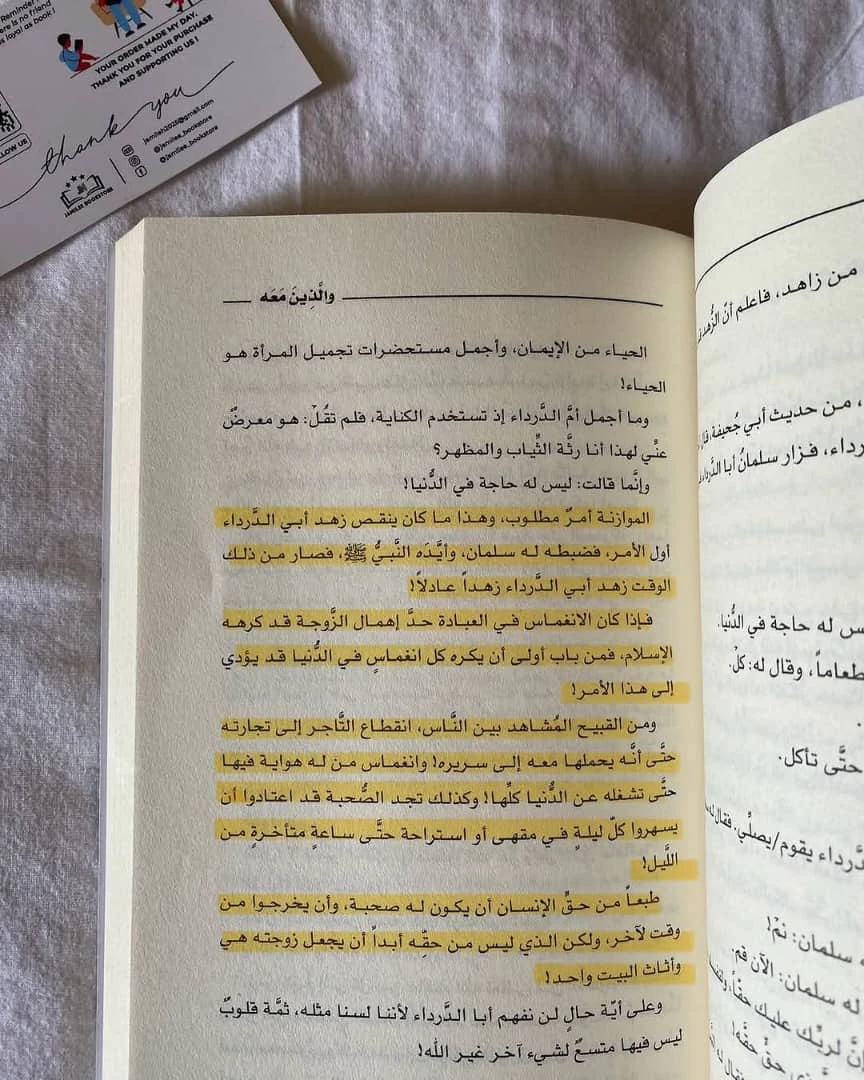 Reminder
ere is no friend
as loyal as book!
YOUR ORDER MADE MY DAY,
THANK YOU FOR YOUR PURCHASE
AND SUPPORTING US!
thank you
LLOW US
JAMILEE BOOKSTORE
jamileh2025@gmail.com
@jamilee_bookstore
@jamilee_bookstore
والَّذِينَ مَعَه
الحياء من الإيمان، وأجمل مستحضرات تجميل المرأة هو
الحياء!
وما أجمل أمَّ الدَّرداء إذ تستخدم الكناية، فلم تقُلْ: هو معرضٌ
عنِّي لهذا أنا رثَّة الثِّياب والمظهر؟
وإنَّما قالت: ليس له حاجة في الدُّنيا!
الموازنة أمرٌ مطلوب، وهذا ما كان ينقص زهد أبي الدَّرداء
أول الأمر، فضبطه له سلمان، وأيَّدَه النَّبيُّ ﷺ، فصار من ذلك
الوقت زهد أبي الدَّرداء زهداً عادلاً!
فإذا كان الانغماس في العبادة حدَّ إهمال الزَّوجة قد كرهه
الإسلام، فمن باب أولى أن يكره كل انغماسٍ في الدُّنيا قد يؤدي
إلى هذا الأمر!
ومن القبيح المُشاهد بين النَّاس، انقطاع التَّاجر إلى تجارته
حتَّى أنَّه يحملها معه إلى سريره! وانغماس من له هواية فيها
حتَّى تشغله عن الدُّنيا كلِّها! وكذلك تجد الصُّحبة قد اعتادوا أن
يسهروا كلّ ليلةٍ في مقهى أو استراحة حتَّى ساعةٍ متأخرةٍ من
اللَّيل!
طبعاً من حقِّ الإنسان أن يكون له صحبة، وأن يخرجوا من
وقت لآخر، ولكن الذي ليس من حقِّه أبداً أن يجعل زوجته هي
وأثاث البيت واحد!
وعلى أيّة حالٍ لن نفهم أبا الدَّرداء لأننا لسنا مثله، ثمَّة قلوبٌ
ليس فيها متسعٌ لشيء آخر غير الله!
من زاهد، فاعلم أنّ الزُّهد
، من حديث أبي جُحيفة، قال
رداء، فزار سلمانُ أبا الدَّرداء
س له حاجة في الدُّنيا.
طعاماً، وقال له: كلْ.
حتَّى تأكل.
دَّرداء يقوم/يصلِّي. فقال له
سلمان: نمْ!
له سلمان: الآن قم.
إنَّ لربِّك عليك حقّاً
حقٍّ حقَّه!